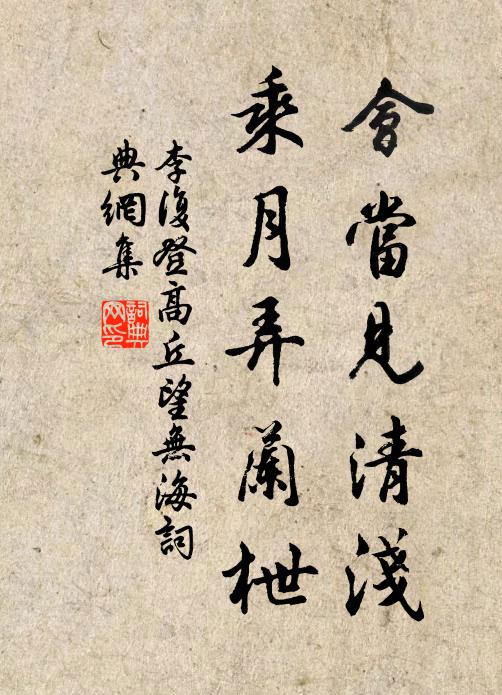 會當見清淺
乘月弄蘭枻
李復登高丘望無海詞
典網集
詞典
网印